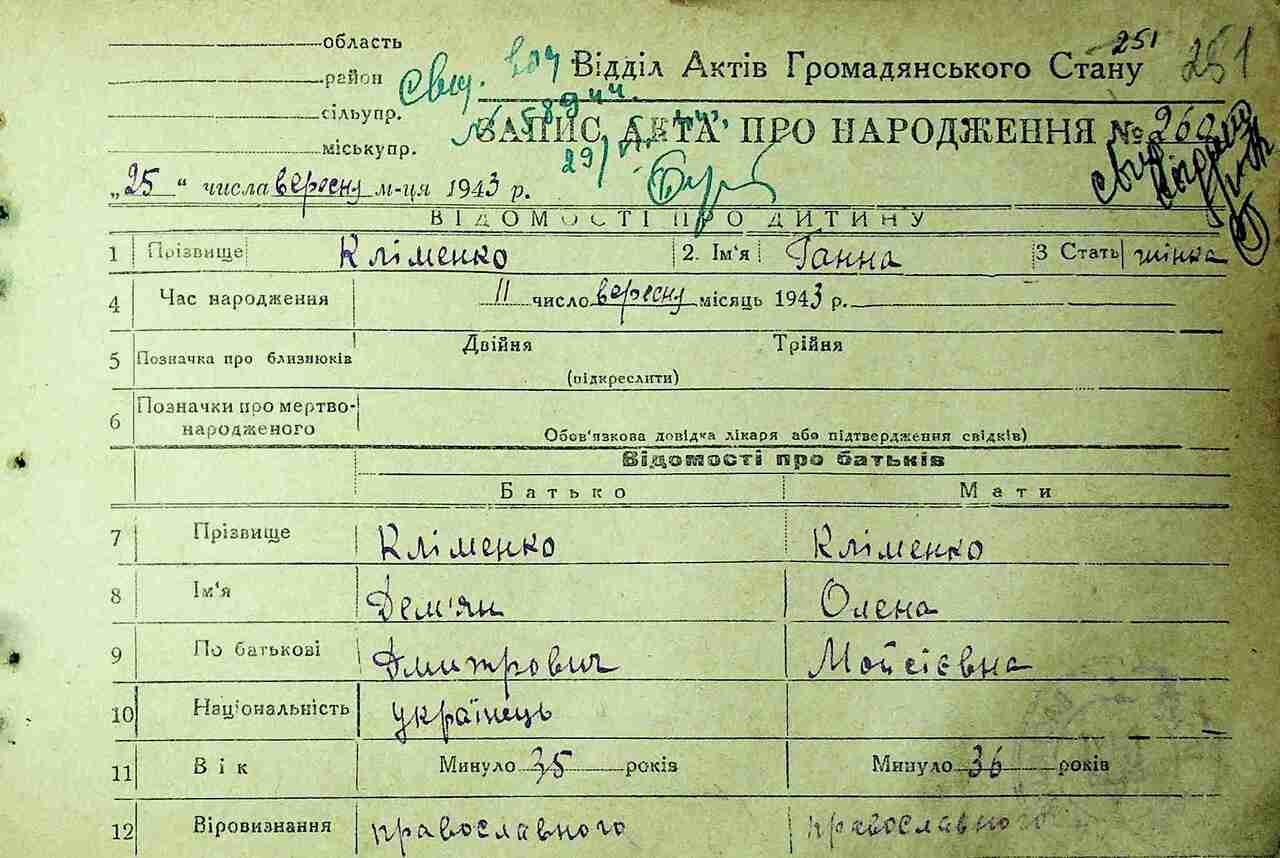 область
район
сільупр.
міськупр.
251 251
Відділ Актів Громадянського Стану
ЗАПИС АКТА ПРО НАРОДЖЕННЯ №
„25" числа вересну м-ця 1943 р.
29/
ВІДОМОСТІ ПРО ДИТИНУ
1 Прізвище Кліменко 2. Ім'я Ганна 3 Стать жінка
4 Час народження 11 число вересну місяць 1943 р.
5 Позначка про близнюків Двійня Трійня
(підкреслити)
6 Позначки про мертво-
народженого
Обов'язкова довідка лікаря або підтвердження свідків)
Відомості про батьків
Батько Мати
7 Прізвище Кліменко Кліменко
8 Ім'я Дем'ян Олена
9 По батькові Дмитрович Мойсієвна
10 Національність українець
11 Вік Минуло 35 років Минуло 36 років
12 Віровизнання православного православного